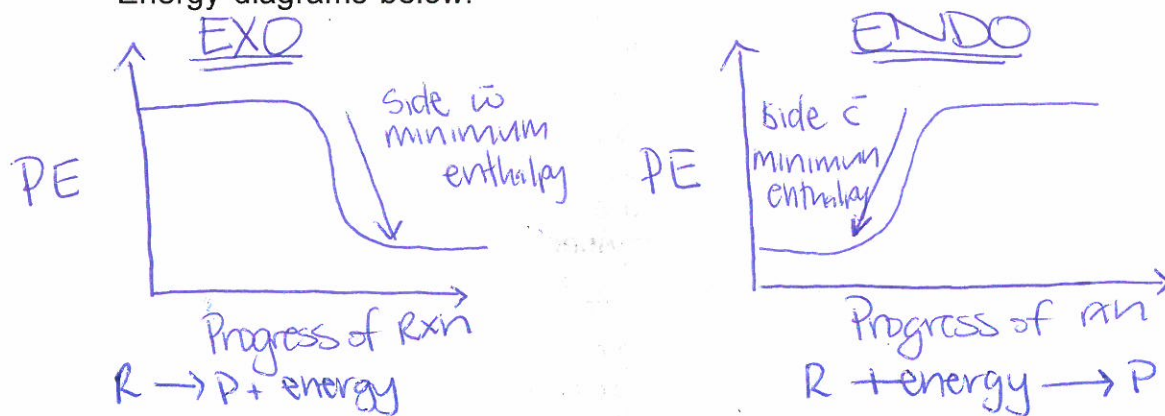 Energy diagrams below.
EXO
PE
side w̄
minimum
enthalpy
Progress of Rxn
R → P + energy
ENDO
PE
side c̄
minimum
enthalpy
Progress of rxn
R + energy → P